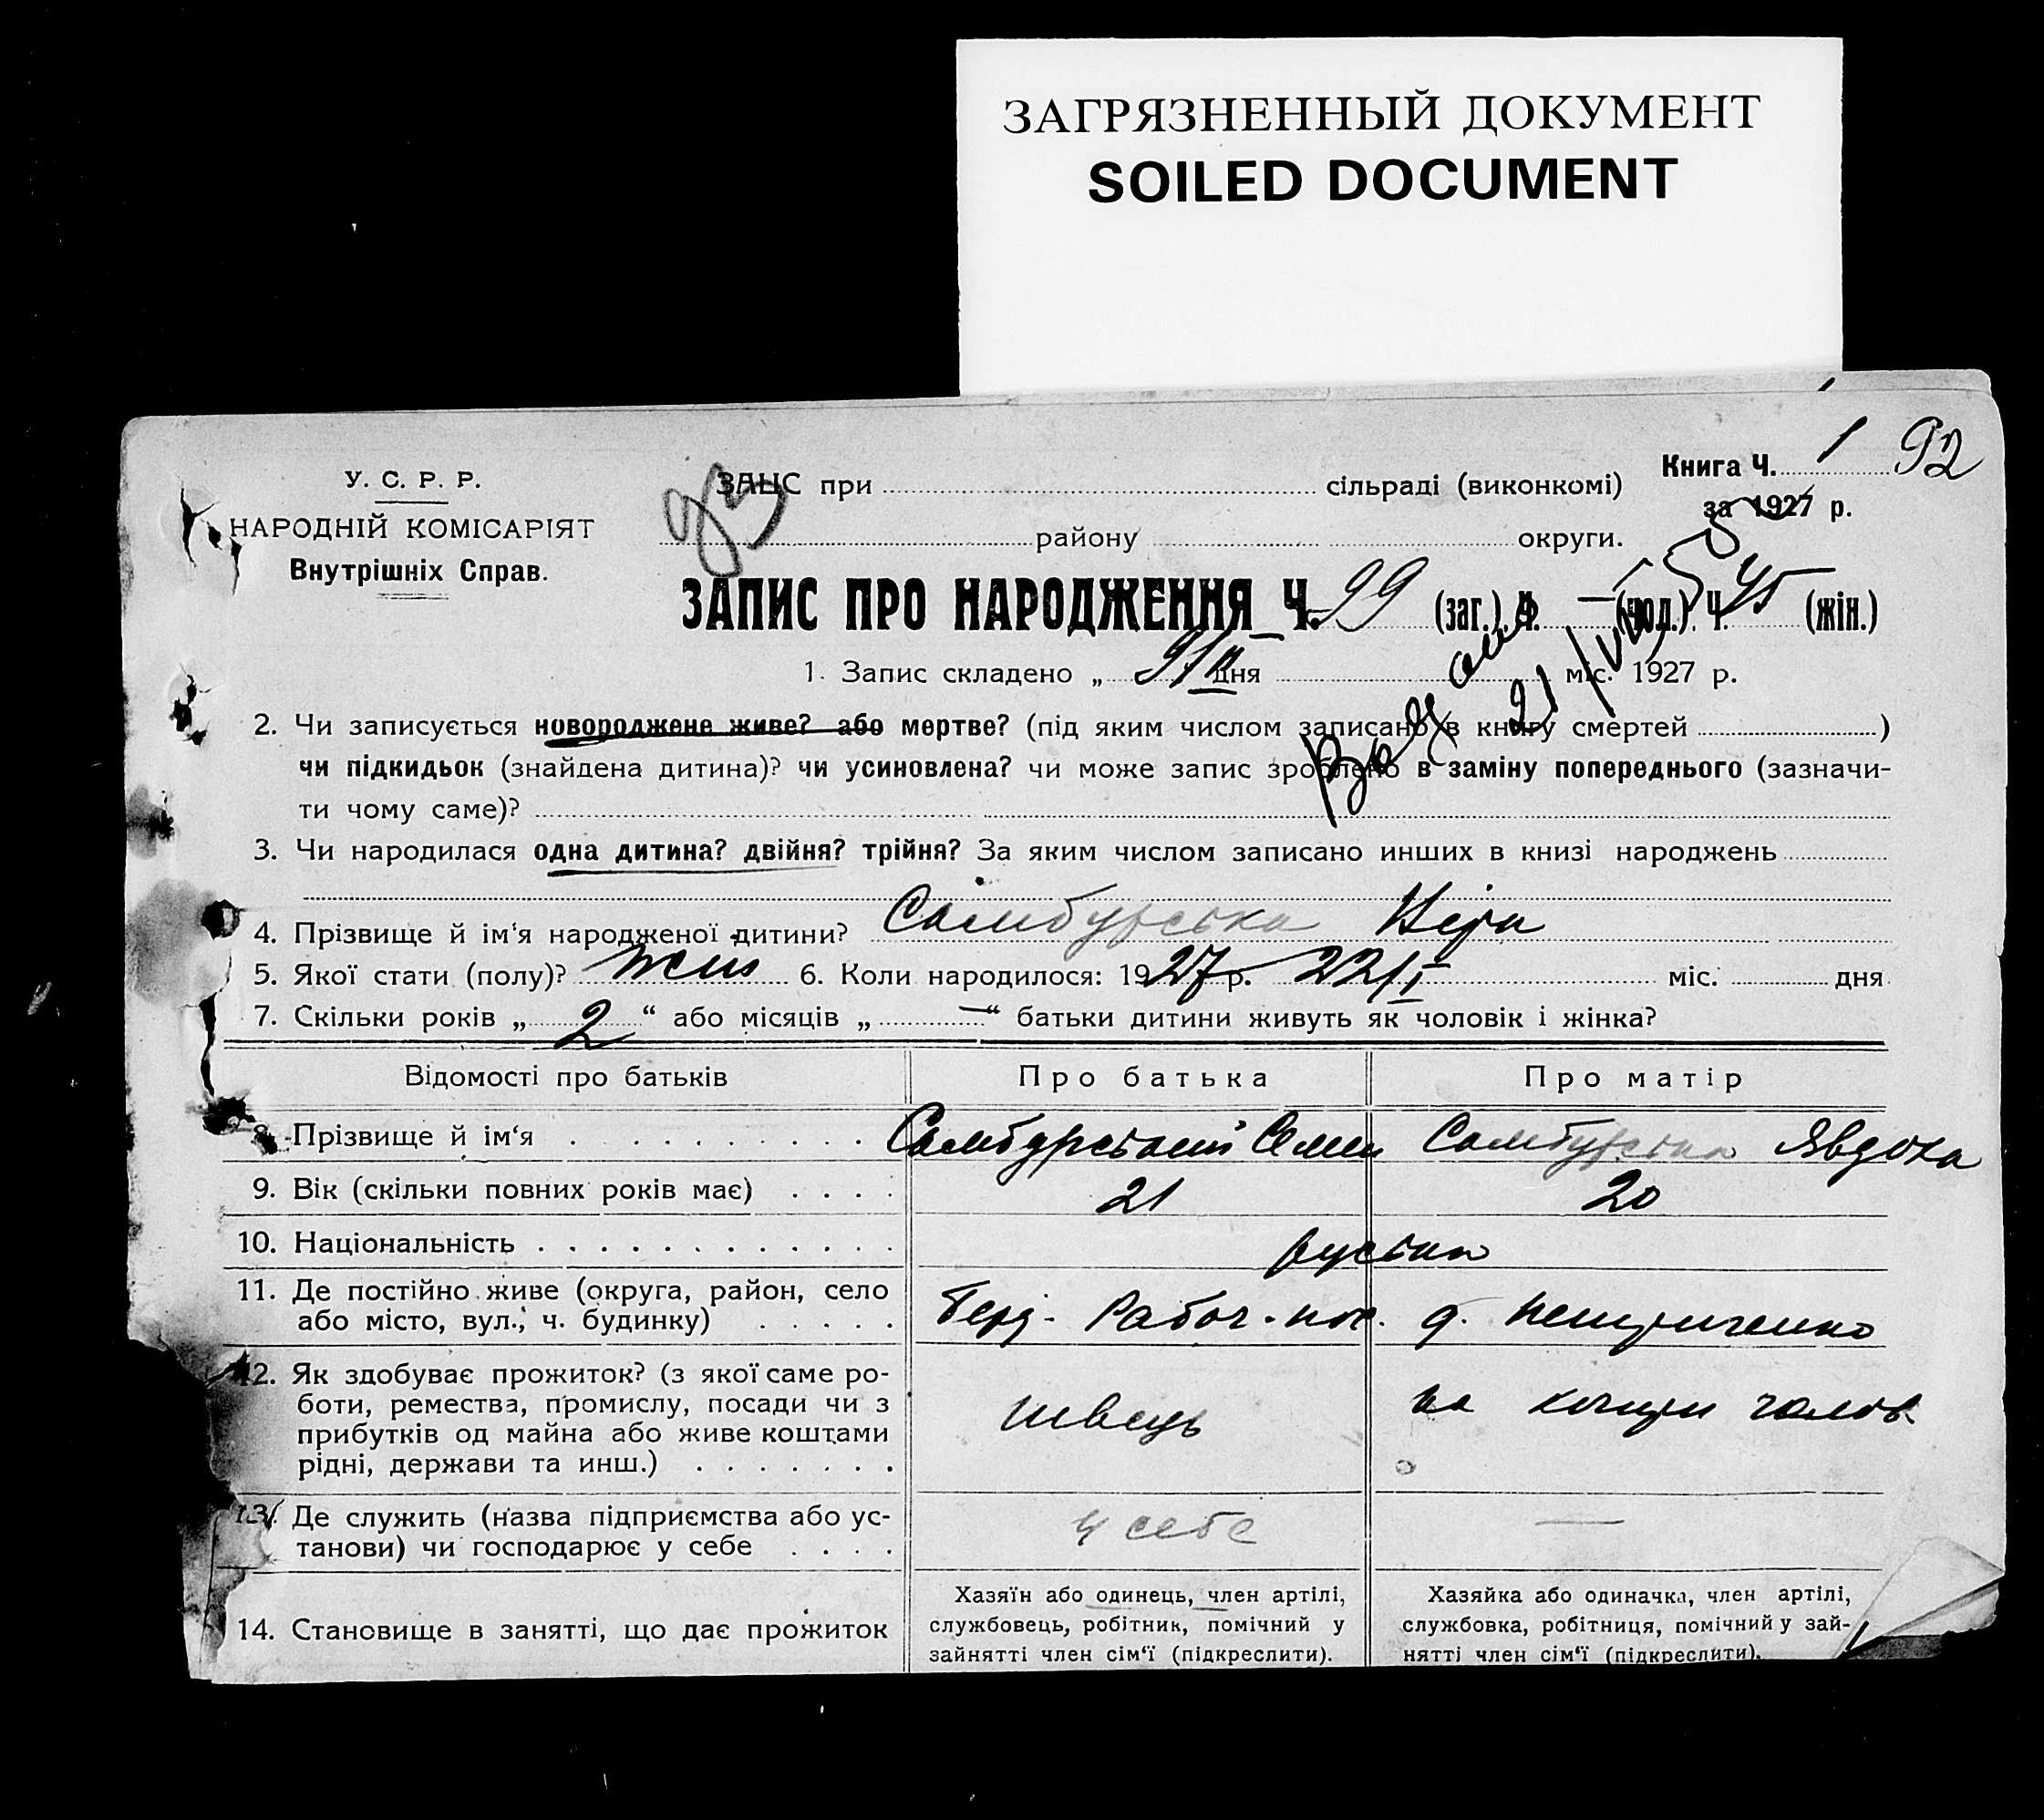 ЗАГРЯЗНЕННЫЙ ДОКУМЕНТ
SOILED DOCUMENT
Книга Ч. 1 92
за 1927 р.
У. С. Р. Р.
НАРОДНІЙ КОМІСАРІЯТ
Внутрішніх Справ.
ЗАЦС при сільраді (виконкомі)
району округи.
ЗАПИС ПРО НАРОДЖЕННЯ Ч. 99 (заг.) Ч. — (чол.) Ч. 45 (жін.)
1. Запис складено „ 9/II дня міс. 1927 р.
2. Чи записується новороджене живе? або мертве? (під яким числом записано в книгу смертей )
чи підкидьок (знайдена дитина)? чи усиновлена? чи може запис зроблено в заміну попереднього (зазначи-
ти чому саме)?
3. Чи народилася одна дитина? двійня? трійня? За яким числом записано инших в книзі народжень
4. Прізвище й ім'я народженої дитини? Самбурська
5. Якої стати (полу)? жін 6. Коли народилося: 1927 р. 22/I міс. дня
7. Скільки років „ 2 “ або місяців „ — “ батьки дитини живуть як чоловік і жінка?
Відомості про батьків Про батька Про матір
8. Прізвище й ім'я Самбурський Семен Самбурська Явдоха
9. Вік (скільки повних років має) 21 20
10. Національність руська
11. Де постійно живе (округа, район, село
або місто, вул., ч. будинку) Рабоч. пос. д.
12. Як здобуває прожиток? (з якої саме ро-
боти, ремества, промислу, посади чи з
прибутків од майна або живе коштами
рідні, держави та инш.) швець на кошти чолов.
13. Де служить (назва підприємства або ус-
танови) чи господарює у себе у себе —
14. Становище в занятті, що дає прожиток
Хазяїн або одинець, член артілі,
службовець, робітник, помічний у
зайнятті член сім'ї (підкреслити).
Хазяйка або одиначка, член артілі,
службовка, робітниця, помічний у зай-
нятті член сім'ї (підкреслити).